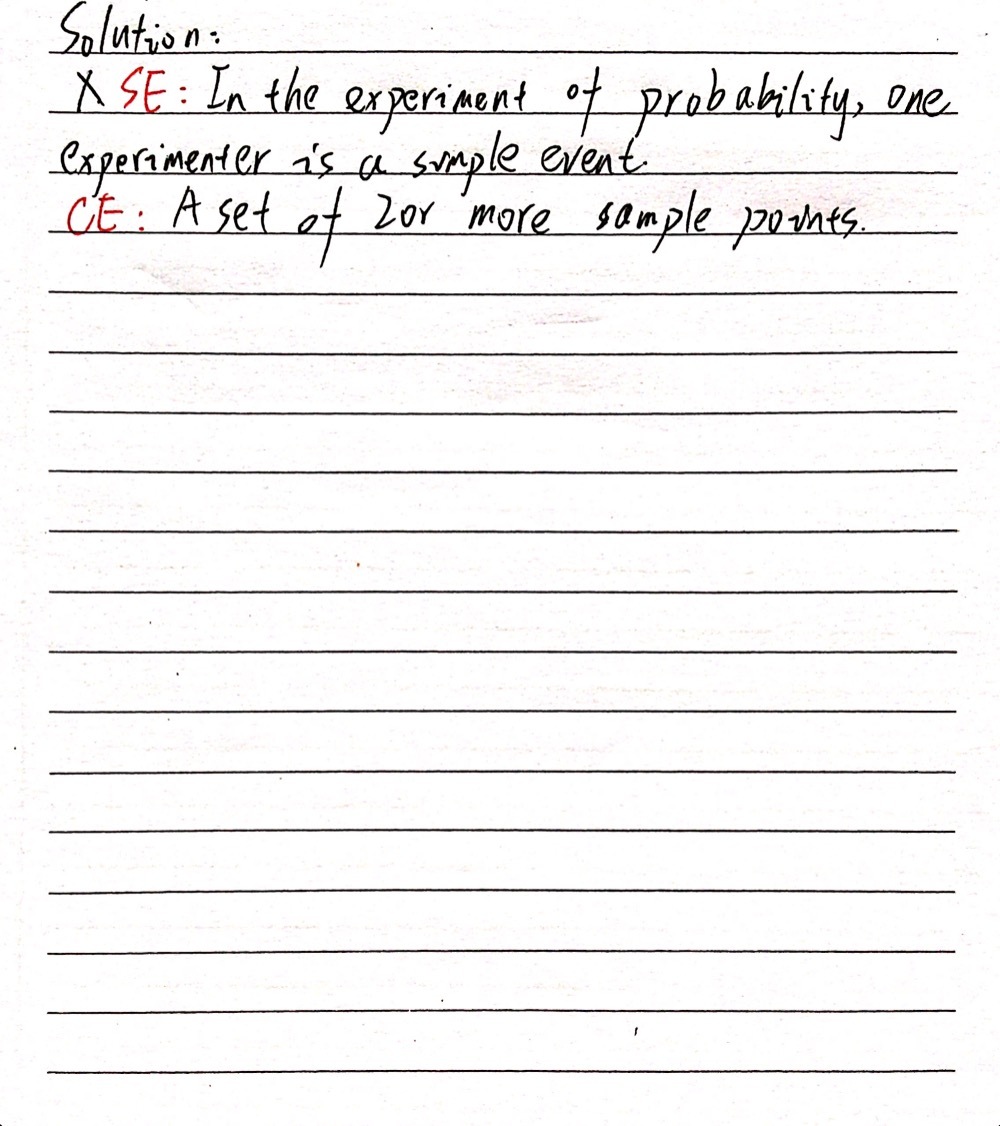 Solution:
X SE: In the experiment of probability, one
experimenter is a simple event.
CE: A set of 2 or more sample points.